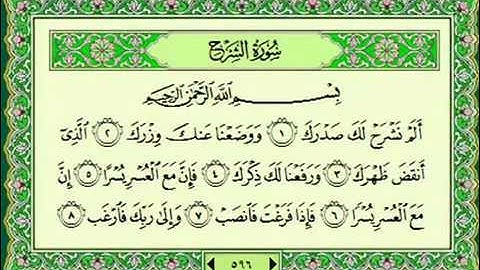 سُورَةُ الشَّرْحِ
بِسْمِ اللَّهِ الرَّحْمَٰنِ الرَّحِيمِ
أَلَمْ نَشْرَحْ لَكَ صَدْرَكَ ١ وَوَضَعْنَا عَنكَ وِزْرَكَ ٢ الَّذِي
أَنقَضَ ظَهْرَكَ ٣ وَرَفَعْنَا لَكَ ذِكْرَكَ ٤ فَإِنَّ مَعَ الْعُسْرِ يُسْرًا ٥ إِنَّ
مَعَ الْعُسْرِ يُسْرًا ٦ فَإِذَا فَرَغْتَ فَانصَبْ ٧ وَإِلَىٰ رَبِّكَ فَارْغَب ٨
٥٩٦